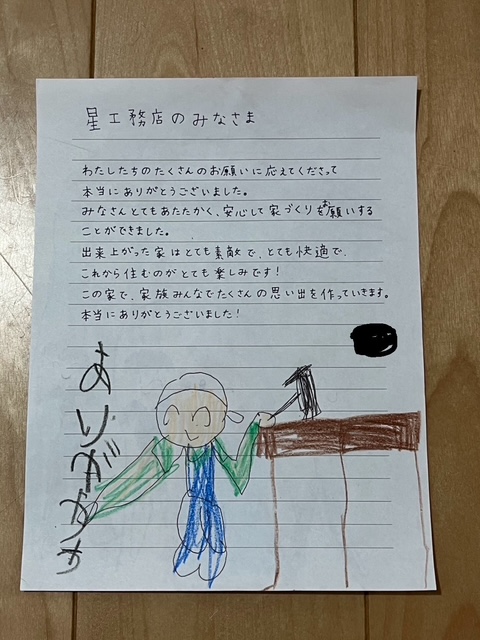 星工務店のみなさま
わたしたちのたくさんのお願いに応えてくださって
本当にありがとうございました。
みなさんとてもあたたかく、安心して家づくりをお願いする
ことができました。
出来上がった家はとても素敵で、とても快適で、
これから住むのがとても楽しみです！
この家で、家族みんなでたくさんの思い出を作っていきます。
本当にありがとうございました！